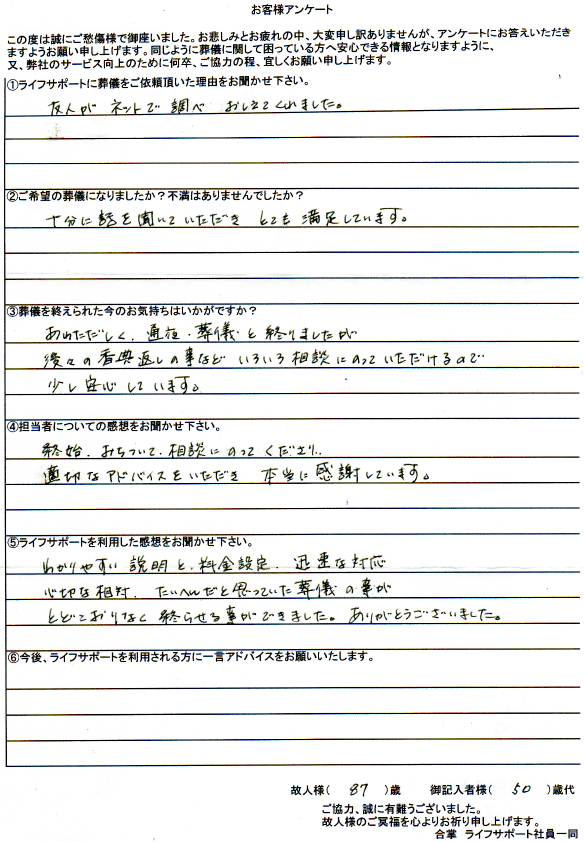 お客様アンケート
この度は誠にご愁傷様で御座いました。お悲しみとお疲れの中、大変申し訳ありませんが、アンケートにお答えいただき
ますようお願い申し上げます。同じように葬儀に関して困っている方へ安心できる情報となりますように、
又、弊社のサービス向上のために何卒、ご協力の程、宜しくお願い申し上げます。
①ライフサポートに葬儀をご依頼頂いた理由をお聞かせ下さい。
友人が ネットで 調べ おしえてくれました。
②ご希望の葬儀になりましたか？不満はありませんでしたか？
十分に話を聞いていただき とても 満足しています。
③葬儀を終えられた今のお気持ちはいかがですか？
あわただしく、通夜・葬儀と 終りましたが
後々の香典返しの事など いろいろ相談にのっていただけるので
少し安心しています。
④担当者についての感想をお聞かせ下さい。
終始、おちついて、相談にのってくださり、
適切なアドバイスをいただき 本当に感謝しています。
⑤ライフサポートを利用した感想をお聞かせ下さい。
わかりやすい 説明と、料金設定、迅速な対応
心切な相対、たいへんだと思っていた葬儀の事が
とどこおりなく 終らせる事ができました。ありがとうございました。
⑥今後、ライフサポートを利用される方に一言アドバイスをお願いいたします。
故人様（ 87 ）歳 御記入者様（ 50 ）歳代
ご協力、誠に有難うございました。
故人様のご冥福を心よりお祈り申し上げます。
合掌 ライフサポート社員一同